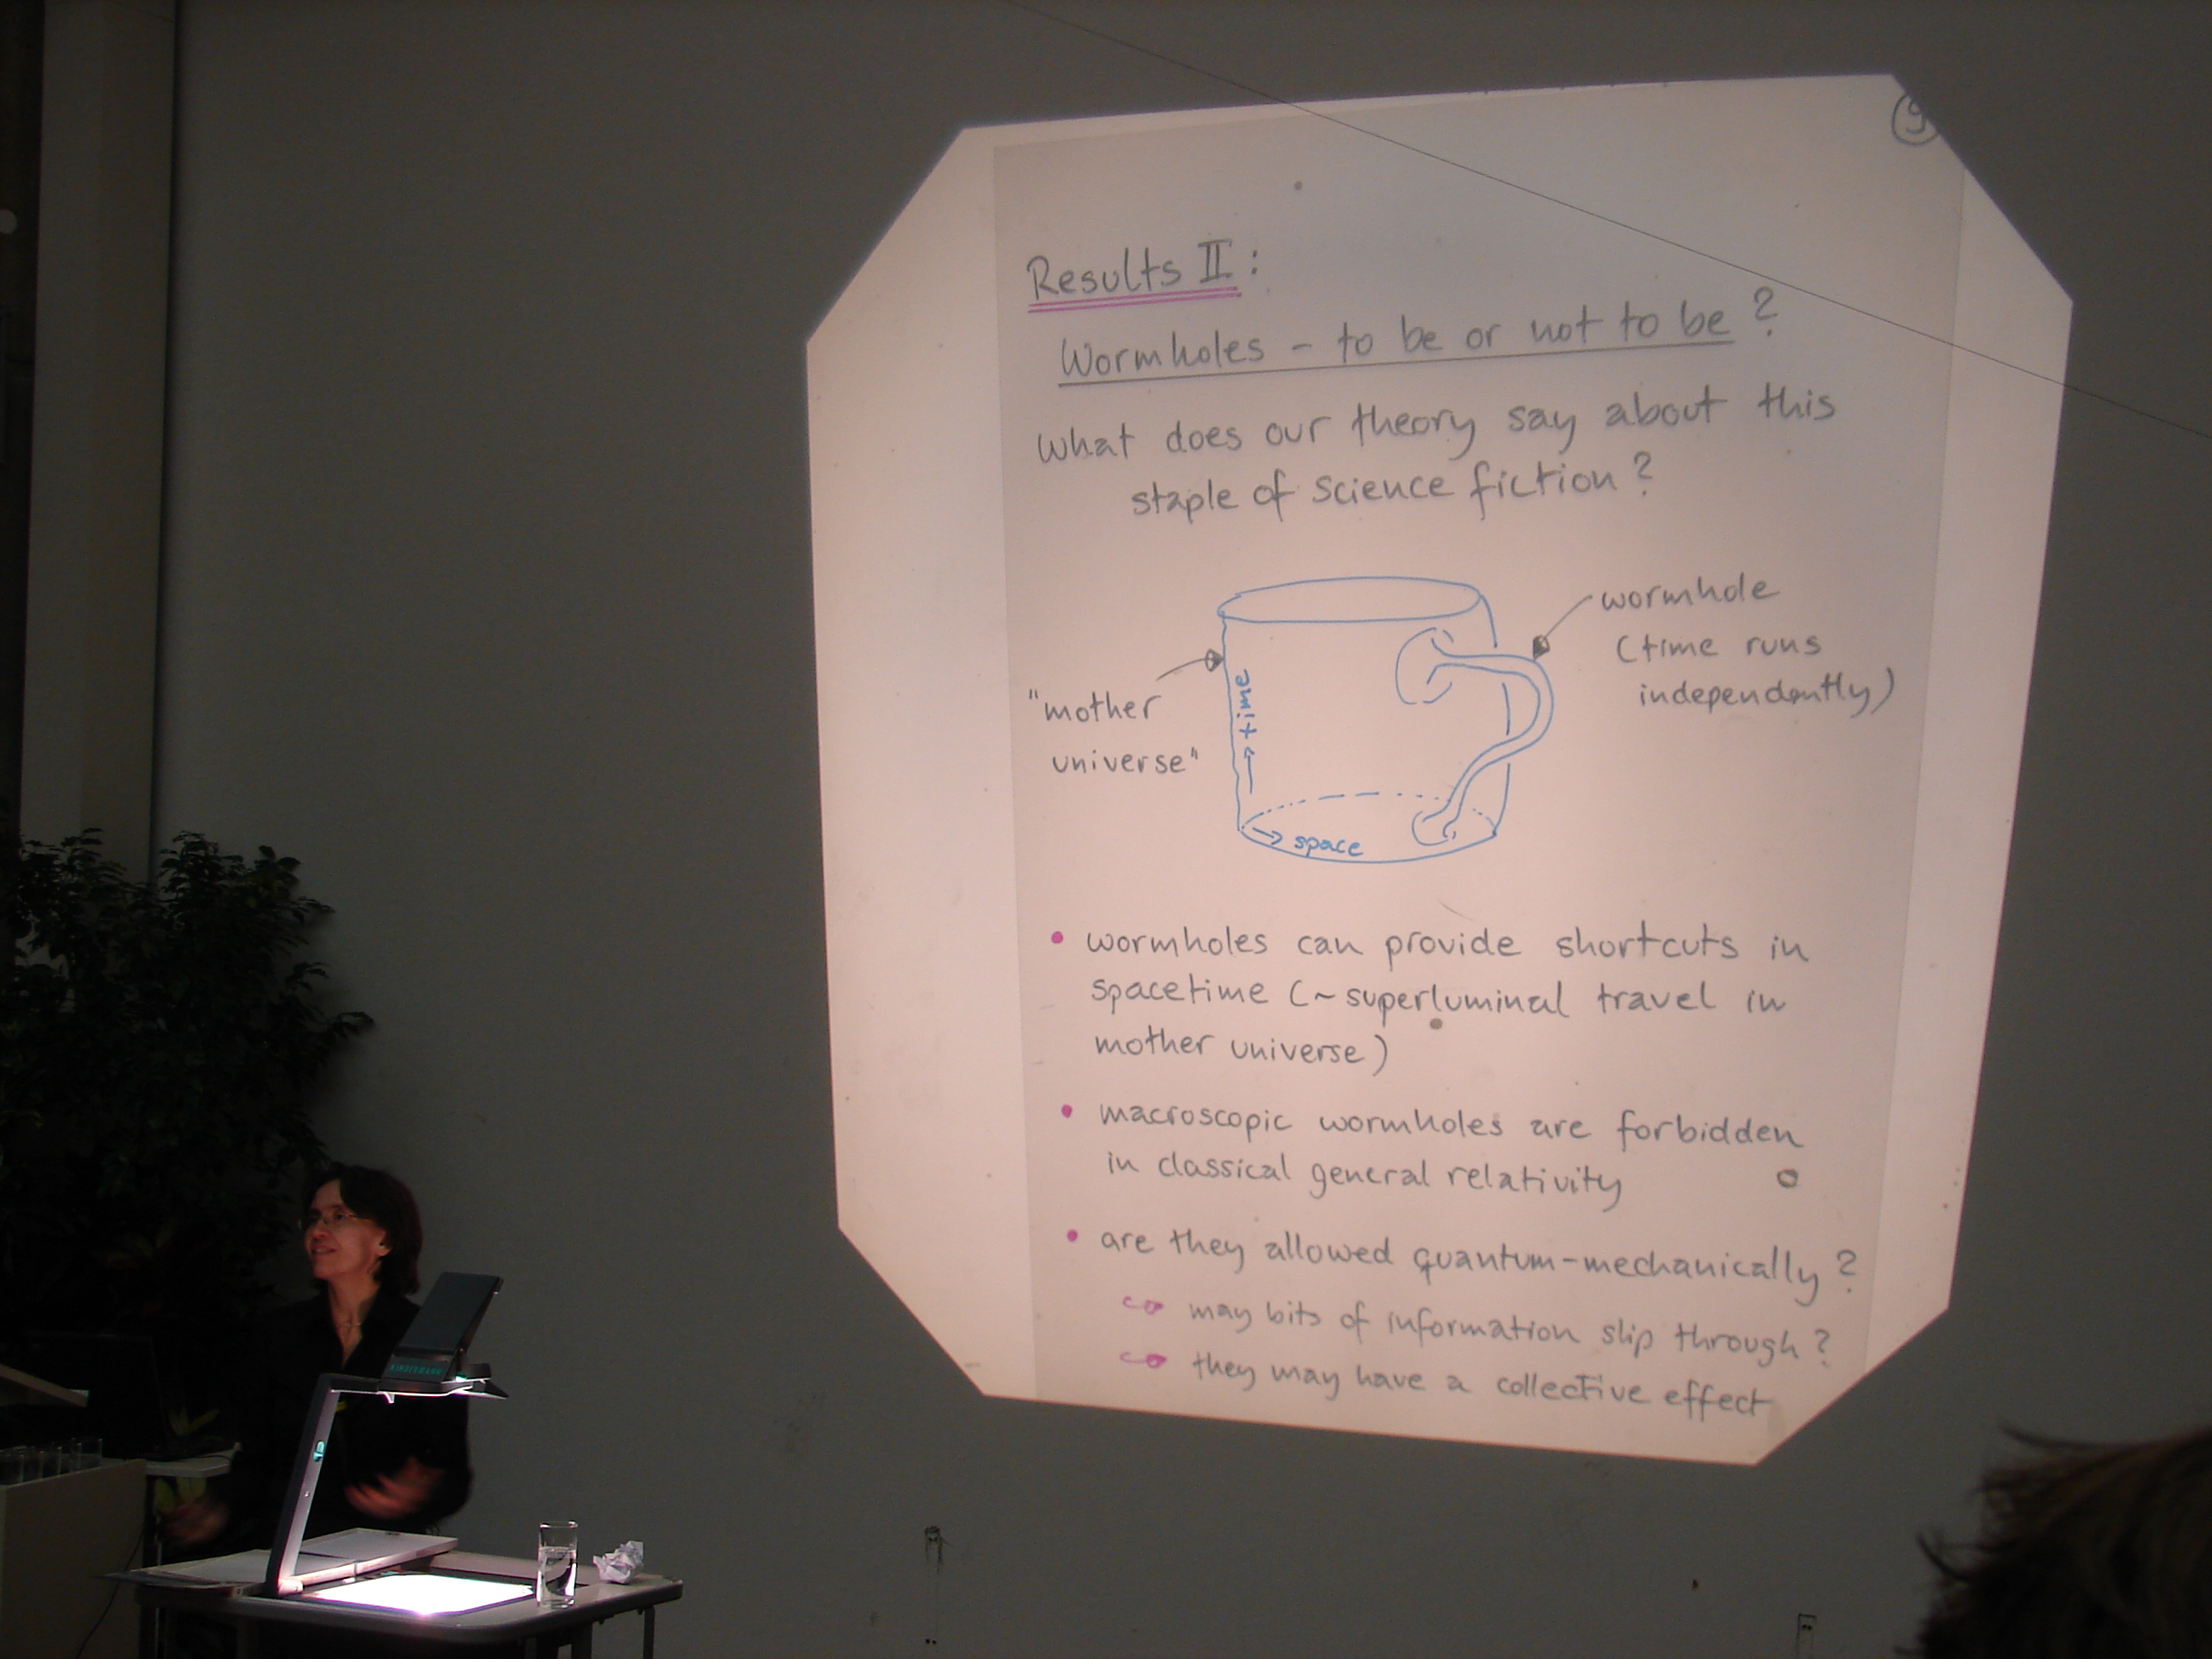 9
Results II:
Wormholes - to be or not to be?
What does our theory say about this
staple of science fiction?
wormhole
(time runs
independently)
"mother
universe"
→ time
→ space
• wormholes can provide shortcuts in
spacetime (~superluminal travel in
mother universe)
• macroscopic wormholes are forbidden
in classical general relativity
• are they allowed quantum-mechanically?
may bits of information slip through?
they may have a collective effect
KINDERMANN